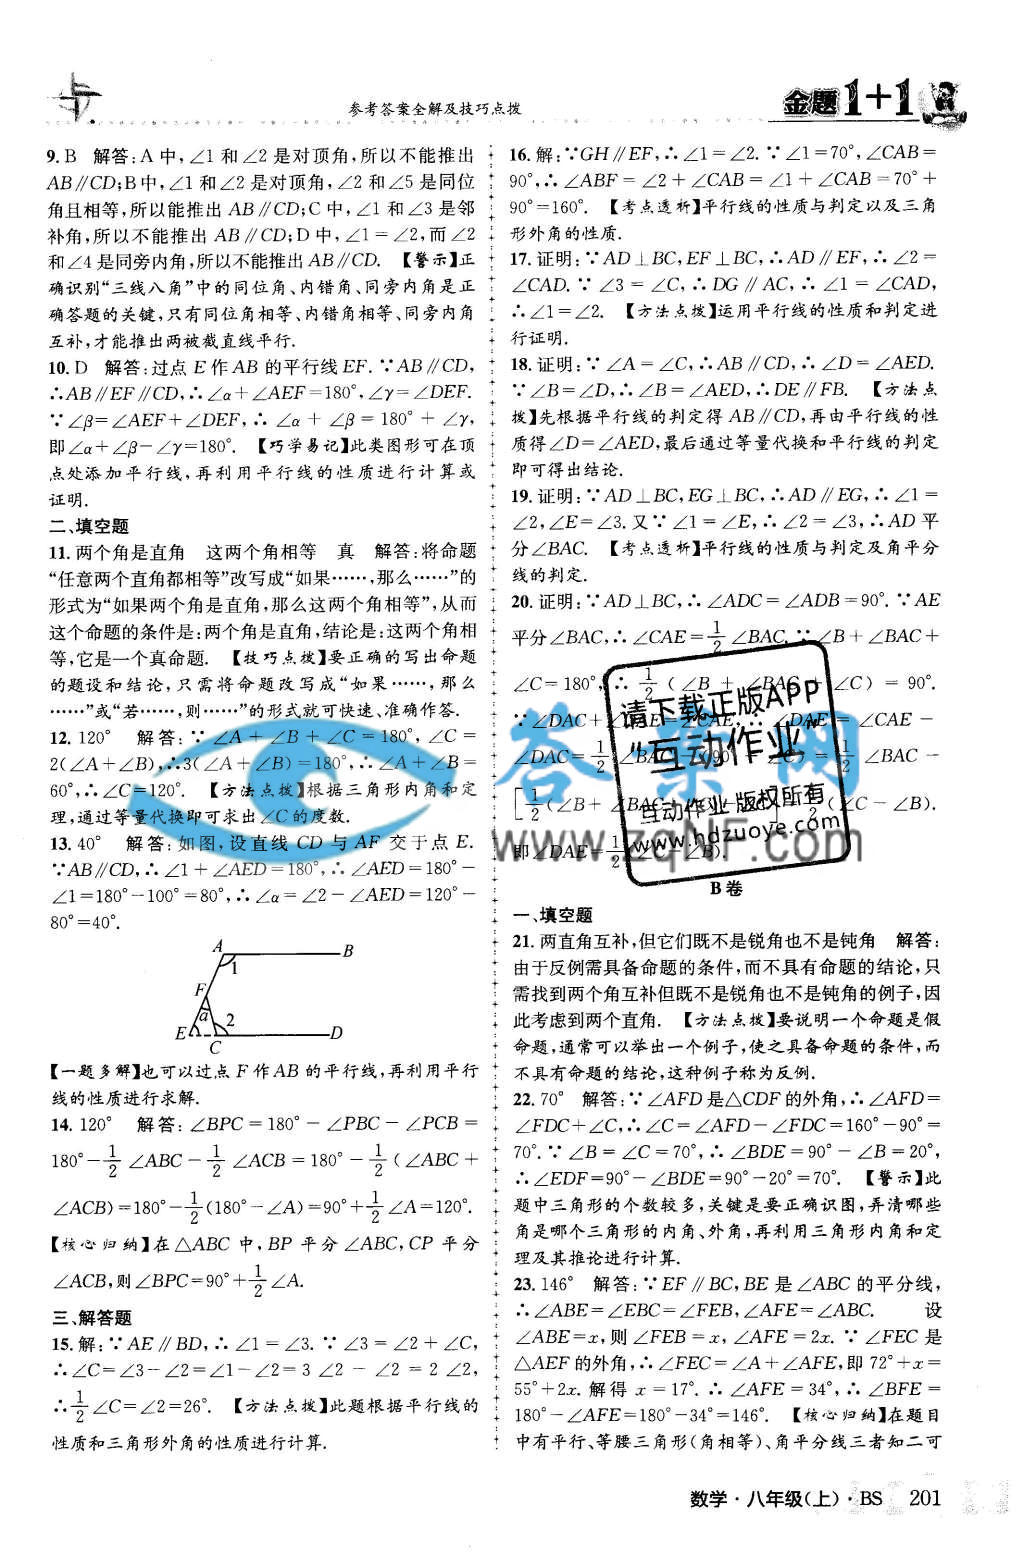 参考答案全解及技巧点拨
金题1+1
9. B 解答:A中,∠1和∠2是对顶角,所以不能推出
AB∥CD;B中,∠1和∠2是对顶角,∠2和∠5是同位
角且相等,所以能推出AB∥CD;C中,∠1和∠3是邻
补角,所以不能推出AB∥CD;D中,∠1=∠2,而∠2
和∠4是同旁内角,所以不能推出AB∥CD. 【警示】正
确识别“三线八角”中的同位角、内错角、同旁内角是正
确答题的关键,只有同位角相等、内错角相等、同旁内角
互补,才能推出两被截直线平行.
10. D 解答:过点E作AB的平行线EF.∵AB∥CD,
∴AB∥EF∥CD,∴∠α+∠AEF=180°,∠γ=∠DEF.
∵∠β=∠AEF+∠DEF,∴∠α+∠β=180°+∠γ,
即∠α+∠β-∠γ=180°. 【巧学易记】此类图形可在顶
点处添加平行线,再利用平行线的性质进行计算或
证明.
二、填空题
11. 两个角是直角 这两个角相等 真 解答:将命题
“任意两个直角都相等”改写成“如果……,那么……”的
形式为“如果两个角是直角,那么这两个角相等”,从而
这个命题的条件是:两个角是直角,结论是:这两个角相
等,它是一个真命题. 【技巧点拨】要正确的写出命题
的题设和结论,只需将命题改写成“如果……,那么
……”或“若……,则……”的形式就可快速、准确作答.
12. 120° 解答:∵∠A+∠B+∠C=180°,∠C=
2(∠A+∠B),∴3(∠A+∠B)=180°,∴∠A+∠B=
60°,∴∠C=120°. 【方法点拨】根据三角形内角和定
理,通过等量代换即可求出∠C的度数.
13. 40° 解答:如图,设直线CD与AF交于点E.
∵AB∥CD,∴∠1+∠AED=180°,∴∠AED=180°-
∠1=180°-100°=80°,∴∠α=∠2-∠AED=120°-
80°=40°.
A B
1
F
α 2
E C D
【一题多解】也可以过点F作AB的平行线,再利用平行
线的性质进行求解.
14. 120° 解答:∠BPC=180°-∠PBC-∠PCB=
180°-1/2∠ABC-1/2∠ACB=180°-1/2(∠ABC+
∠ACB)=180°-1/2(180°-∠A)=90°+1/2∠A=120°.
【核心归纳】在△ABC中,BP平分∠ABC,CP平分
∠ACB,则∠BPC=90°+1/2∠A.
三、解答题
15. 解:∵AE∥BD,∴∠1=∠3.∵∠3=∠2+∠C,
∴∠C=∠3-∠2=∠1-∠2=3∠2-∠2=2∠2,
∴1/2∠C=∠2=26°. 【方法点拨】此题根据平行线的
性质和三角形外角的性质进行计算.
16. 解:∵GH∥EF,∴∠1=∠2.∵∠1=70°,∠CAB=
90°,∴∠ABF=∠2+∠CAB=∠1+∠CAB=70°+
90°=160°. 【考点透析】平行线的性质与判定以及三角
形外角的性质.
17. 证明:∵AD⊥BC,EF⊥BC,∴AD∥EF,∴∠2=
∠CAD.∵∠3=∠C,∴DG∥AC,∴∠1=∠CAD,
∴∠1=∠2. 【方法点拨】运用平行线的性质和判定进
行证明.
18. 证明:∵∠A=∠C,∴AB∥CD,∴∠D=∠AED.
∵∠B=∠D,∴∠B=∠AED,∴DE∥FB. 【方法点
拨】先根据平行线的判定得AB∥CD,再由平行线的性
质得∠D=∠AED,最后通过等量代换和平行线的判定
即可得出结论.
19. 证明:∵AD⊥BC,EG⊥BC,∴AD∥EG,∴∠1=
∠2,∠E=∠3.又∵∠1=∠E,∴∠2=∠3,∴AD平
分∠BAC. 【考点透析】平行线的性质与判定及角平分
线的判定.
20. 证明:∵AD⊥BC,∴∠ADC=∠ADB=90°.∵AE
平分∠BAC,∴∠CAE=1/2∠BAC.∵∠B+∠BAC+
∠C=180°,∴1/2(∠B+∠BAC+∠C)=90°.
∵∠DAC+∠DAE=∠CAE,∴∠DAE=∠CAE-
∠DAC=1/2∠BAC-(90°-∠C)=1/2∠BAC-
[1/2(∠B+∠BAC+∠C)-∠C]=1/2(∠C-∠B).
即∠DAE=1/2(∠C-∠B).
答案网
www.zqNF.com
请下载正版APP
“互动作业”
互动作业·版权所有
www.hdzuoye.com
B卷
一、填空题
21. 两直角互补,但它们既不是锐角也不是钝角 解答:
由于反例需具备命题的条件,而不具有命题的结论,只
需找到两个角互补但既不是锐角也不是钝角的例子,因
此考虑到两个直角. 【方法点拨】要说明一个命题是假
命题,通常可以举出一个例子,使之具备命题的条件,而
不具有命题的结论,这种例子称为反例.
22. 70° 解答:∵∠AFD是△CDF的外角,∴∠AFD=
∠FDC+∠C,∴∠C=∠AFD-∠FDC=160°-90°=
70°.∵∠B=∠C=70°,∴∠BDE=90°-∠B=20°,
∴∠EDF=90°-∠BDE=90°-20°=70°. 【警示】此
题中三角形的个数较多,关键是要正确识图,弄清哪些
角是哪个三角形的内角、外角,再利用三角形内角和定
理及其推论进行计算.
23. 146° 解答:∵EF∥BC,BE是∠ABC的平分线,
∴∠ABE=∠EBC=∠FEB,∠AFE=∠ABC. 设
∠ABE=x,则∠FEB=x,∠AFE=2x.∵∠FEC是
△AEF的外角,∴∠FEC=∠A+∠AFE,即72°+x=
55°+2x.解得x=17°.∴∠AFE=34°,∴∠BFE=
180°-∠AFE=180°-34°=146°. 【核心归纳】在题目
中有平行、等腰三角形(角相等)、角平分线三者知二可
数学·八年级(上)·BS 201